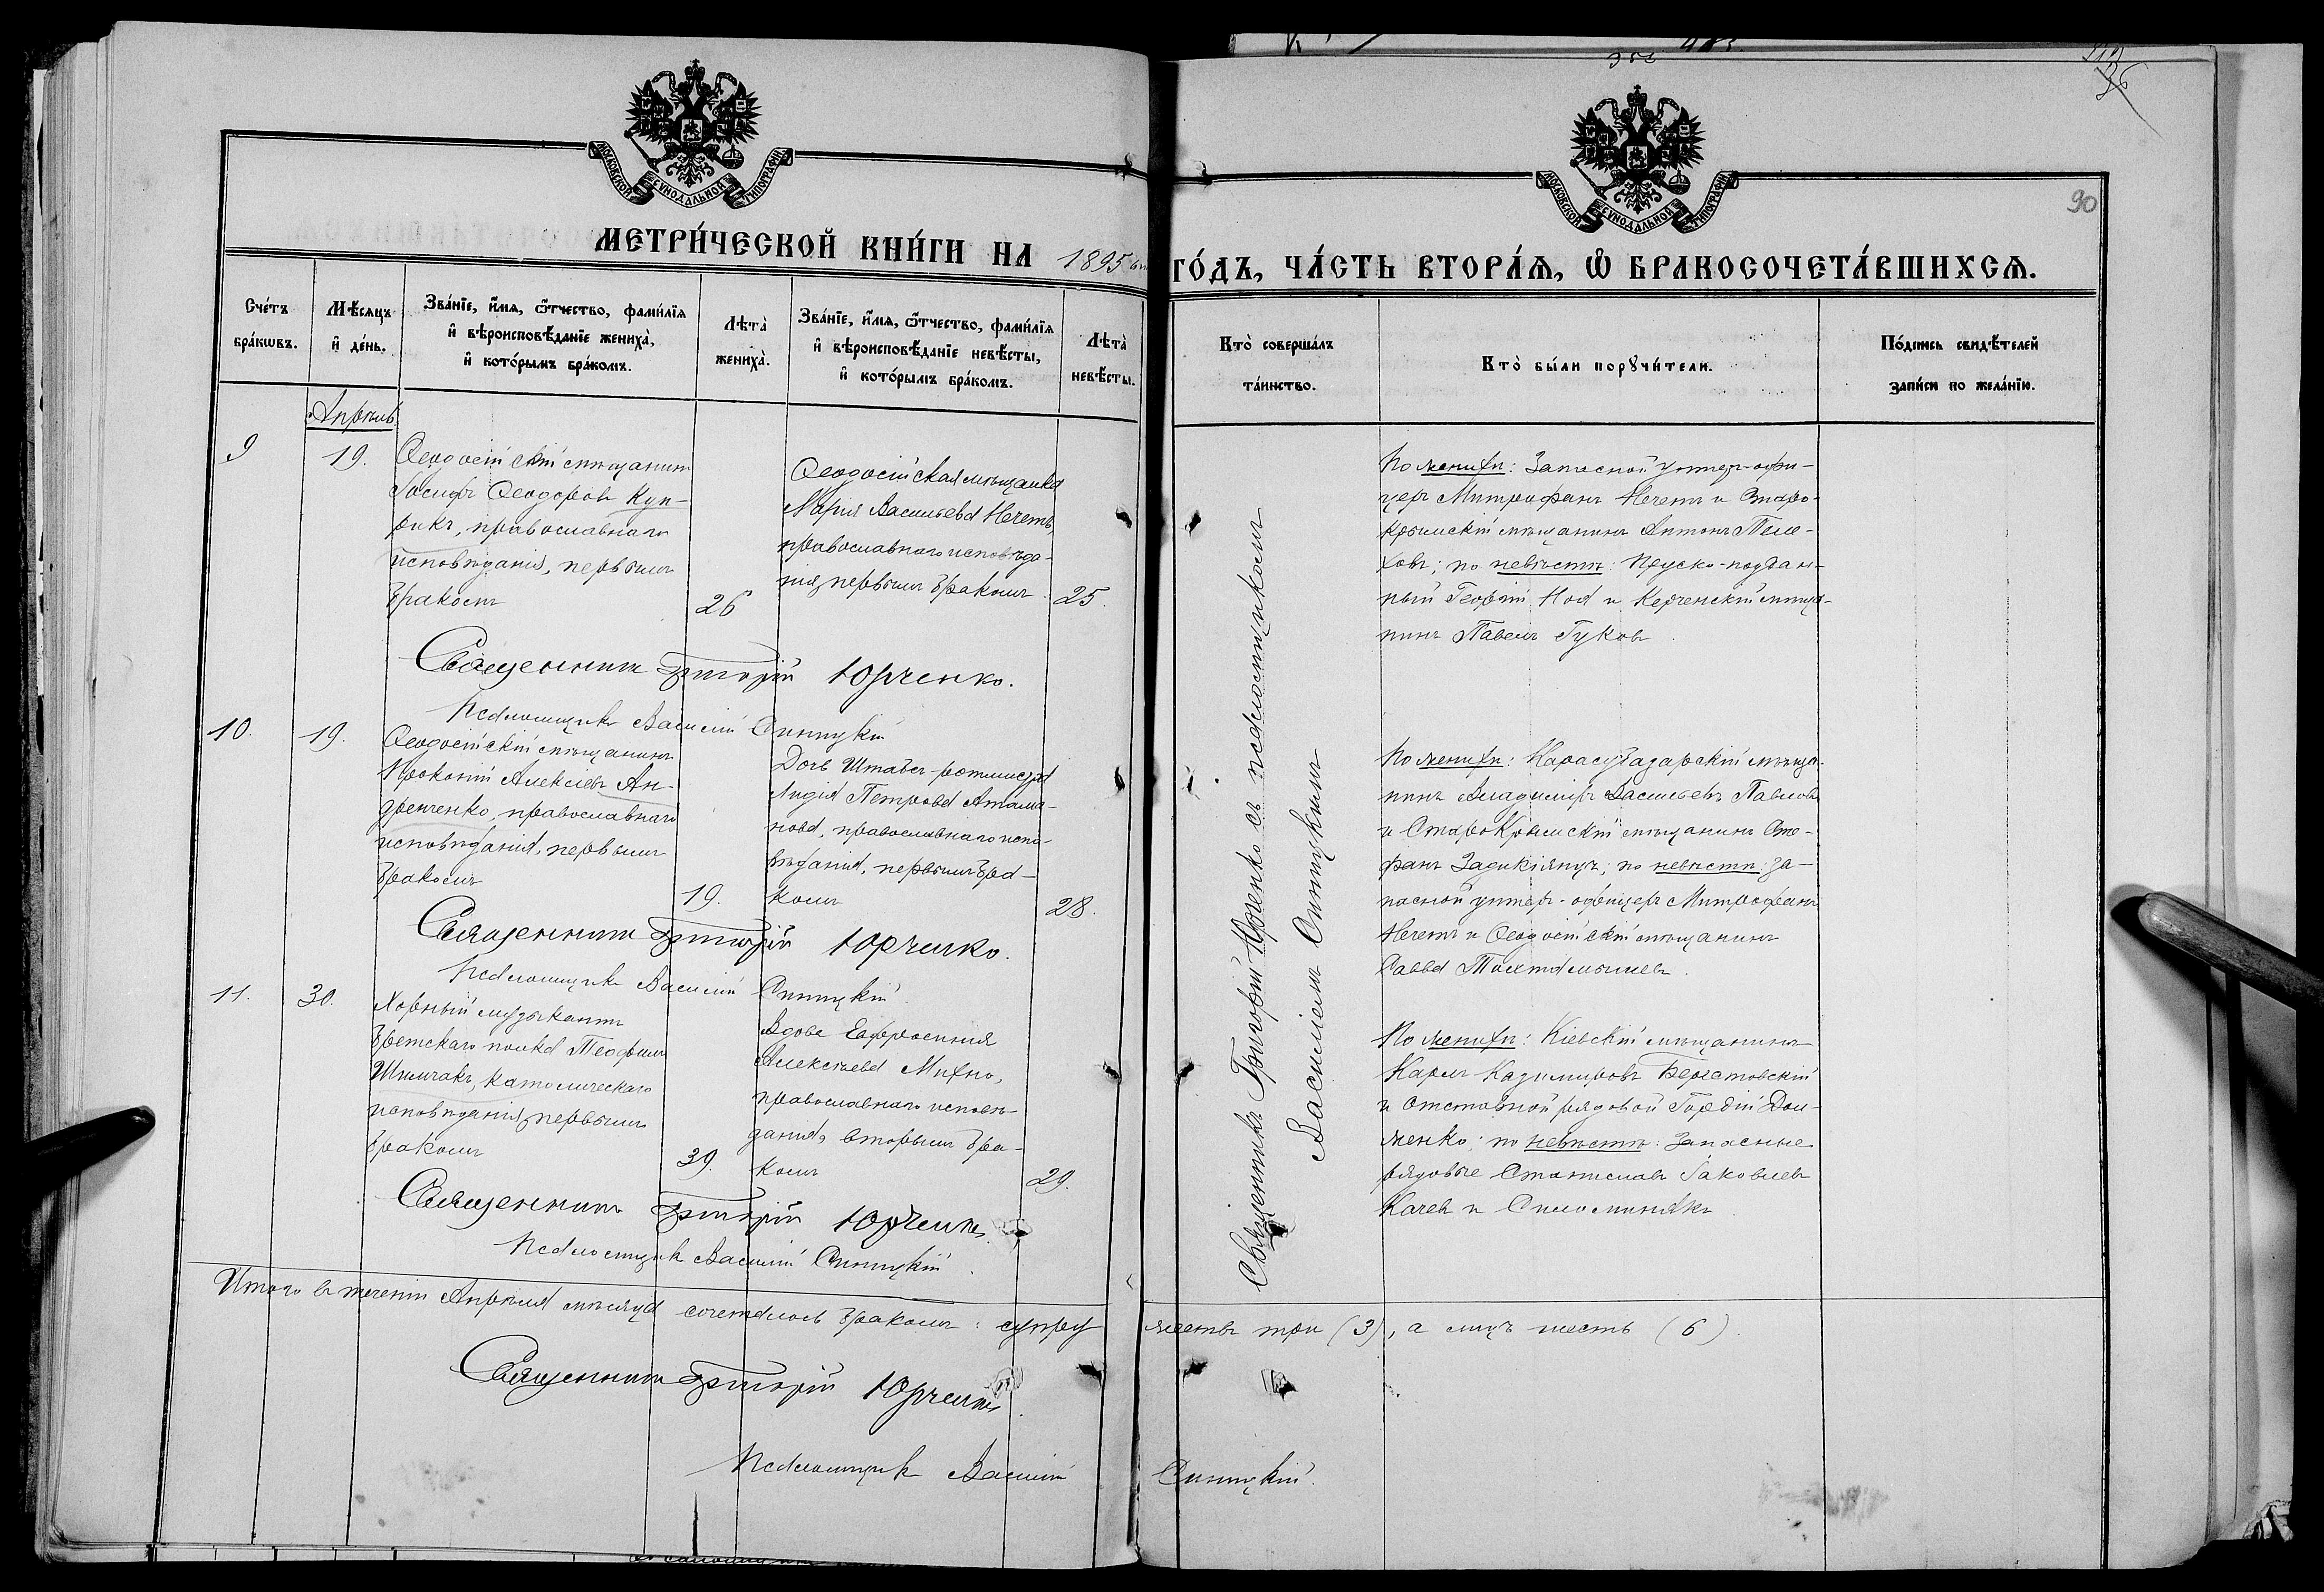 90
МОСКОВСКОЙ СѴНОДАЛЬНОЙ ТИПОГРАФІИ
МОСКОВСКОЙ СѴНОДАЛЬНОЙ ТИПОГРАФІИ
МЕТРИ́ЧЕСКОЙ КНИ́ГИ НА 1895 ГО́ДЪ, ЧА́СТЬ ВТОРА́Ѧ, Ѡ҆ БРАКОСОЧЕТА́ВШИХСѦ.
Сче́тъ
бра́кωвъ.
Мѣ́сяцъ
и҆ де́нь.
Зва́нїе, и҆́мѧ, ѻ҆́тчество, фами́лїѧ
и҆ вѣроисповѣ́данїе жениха̀,
и҆ кото́рымъ бра́комъ.
Лѣта̀
жениха̀.
Зва́нїе, и҆́мѧ, ѻ҆́тчество, фами́лїѧ
и҆ вѣроисповѣ́данїе невѣ́сты,
и҆ кото́рымъ бра́комъ.
Лѣта̀
невѣ́сты.
Кто̀ соверша́лъ
та́инство.
Кто̀ бы́ли порꙋчи́тели.
По́дпись свидѣ́телей
за́писи по жела́нїю.
Апрѣль
9
19.
Ѳеодосійскій мѣщанинъ
Іосифъ Ѳеодоровъ Куп-
рикъ, православнаго
исповѣданія, первымъ
бракомъ
26
Ѳеодосійская мѣщанка
Марія Васильева Нечетъ,
православнаго исповѣда-
нія, первымъ бракомъ
25.
По женихѣ: Запасной унтеръ-офи-
церъ Митрофанъ Нечетъ и Старо-
крымскій мѣщанинъ Антонъ
по невѣстѣ: Прусско-поддан-
ный Георгій Ной и Керченскій мѣща-
нинъ Павелъ Гуковъ.
Священникъ Григорій Юрченко.
Псаломщикъ Василій Синицкій
10.
19.
Ѳеодосійскій мѣщанинъ
Прокопій Алексѣевъ Ан-
дрейченко, православнаго
исповѣданія, первымъ
бракомъ
19.
Дочь Штабсъ-ротмистра
Лидія Петрова Атама-
нова, православнаго испо-
вѣданія, первымъ бра-
комъ
28.
По женихѣ: Карасубазарскій мѣща-
нинъ Владиміръ Васильевъ Павловъ
и Старокрымскій мѣщанинъ Сте-
фанъ Задикіянцъ; по невѣстѣ: за-
пасной унтеръ-офицеръ Митрофанъ
Нечетъ и Ѳеодосійскій мѣщанинъ
Савва
Священникъ Григорій Юрченко.
Псаломщикъ Василій Синицкій
11.
30.
Хорный музыкантъ
Брестскаго полка Теофилъ
Шимчакъ, католическаго
исповѣданія, первымъ
бракомъ
39.
Вдова Евфросинія
Алексѣева Михно,
православнаго исповѣ-
данія, вторымъ бра-
комъ
29.
По женихѣ: Кіевскій мѣщанинъ
Карлъ Казимировъ Берестовскій
и отставной рядовой Гордій Дол-
женко; по невѣстѣ: Запасные
рядовые Станиславъ Іаковлевъ
Качев и
Священникъ Григорій Юрченко
Псаломщикъ Василій Синицкій
Священникъ Григорій Юрченко съ псаломщикомъ
Василіемъ Синицкимъ
Итого въ теченіи Апрѣля мѣсяца сочеталось бракомъ: супру
жествъ три (3), а лицъ шесть (6).
Священникъ Григорій Юрченко
Псаломщикъ Василій Синицкій.